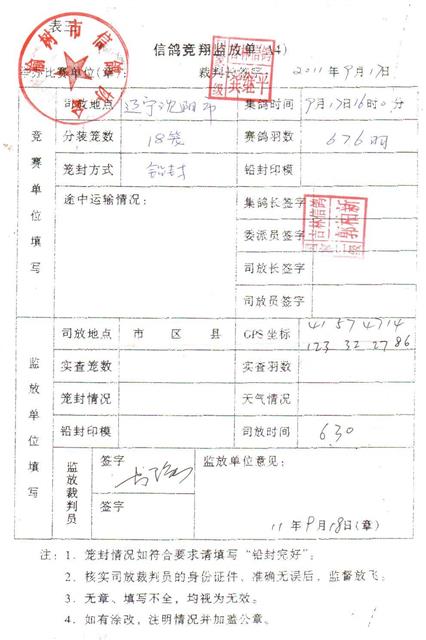 表三
信鸽竞翔监放单(4)
榆树市信鸽协会
举办比赛单位(章): 裁判长签字: 2011年9月17日
竞赛单位填写
司放地点 辽宁沈阳市 集鸽时间 9月17日16时0分
分装笼数 18笼 赛鸽羽数 676羽
笼封方式 铅封 铅封印模
途中运输情况: 集鸽长签字
委派员签字
司放长签字
司放员签字
监放单位填写
司放地点 市 区 县 GPS坐标 41 57 47 14
123 32 27 86
实查笼数 实查羽数
笼封情况 天气情况
铅封印模 司放时间 6.30
监放裁判员 签字 监放单位意见:
签字
11年9月18日(章)
注: 1. 笼封情况如符合要求请填写“铅封完好”。
2. 核实司放裁判员的身份证件、准确无误后,监督放飞。
3. 无章、填写不全,均视为无效。
4. 如有涂改,注明情况并加盖公章。